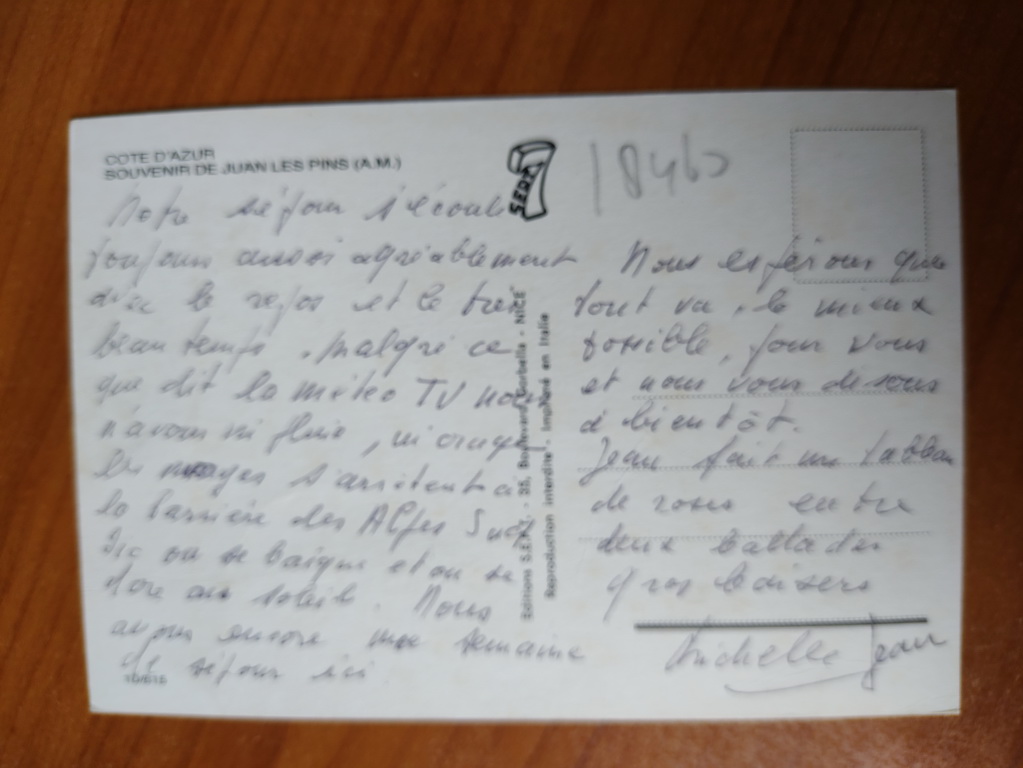 COTE D'AZUR
SOUVENIR DE JUAN LES PINS (A.M.)
Notre séjour s'écoule
toujours aussi agréablement
avec le repos et le très
beau temps, malgré ce
que dit la météo TV nous
n'avons ni pluie, ni orage
les nuages s'arrêtent à
la barrière des Alpes Sud
Ici on se baigne et on se
dore au soleil. Nous
avons encore une semaine
de séjour ici
10/615
SEPT
Editions S.E.P.T. - 35, Boulevard - NICE
Reproduction interdite - Imprimé en Italie
18460
Nous espérons que
tout va, le mieux
possible, pour vous
et nous vous disons
à bientôt.
Jean fait un tableau
de roses entre
deux ballades
Gros baisers
Michelle Jean